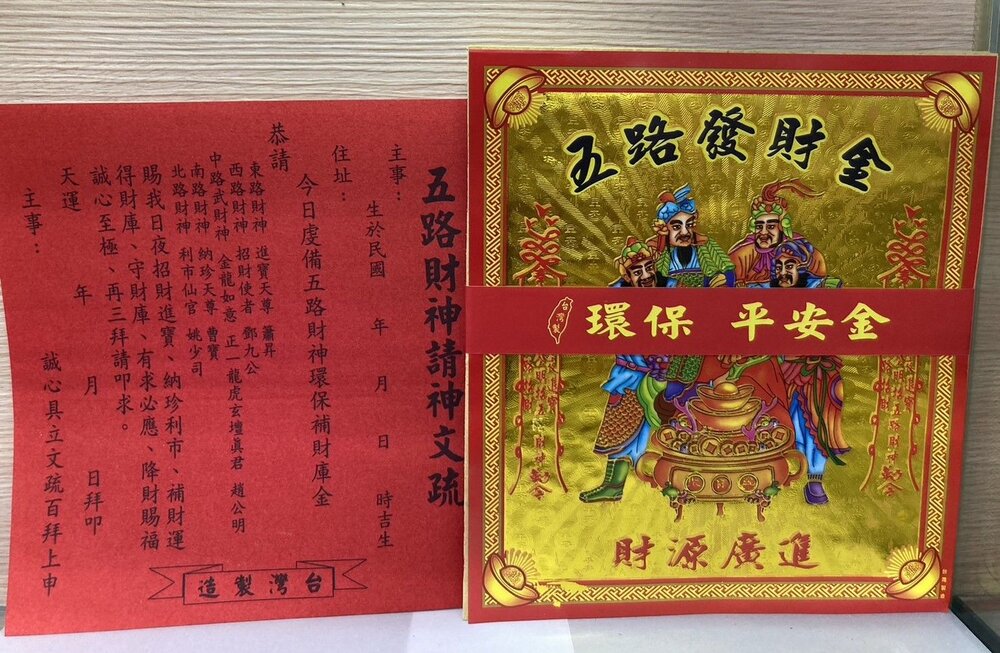 五路財神請神文疏
主事：
生於民國 年 月 日 時吉生
住址：
今日虔備五路財神環保補財庫金
恭請
東路財神 進寶天尊 蕭昇
西路財神 招財使者 鄧九公
中路武財神 金龍如意 正一 龍虎玄壇真君 趙公明
南路財神 納珍天尊 曹寶
北路財神 利市仙官 姚少司
賜我日夜招財進寶、納珍利市、補財運
得財庫、守財庫、有求必應、降財賜福
誠心至極、再三拜請叩求。
天運 年 月 日拜叩
主事： 誠心具立文疏百拜上申
台灣製造
五路發財金
台灣製
環保 平安金
財源廣進
台灣製造